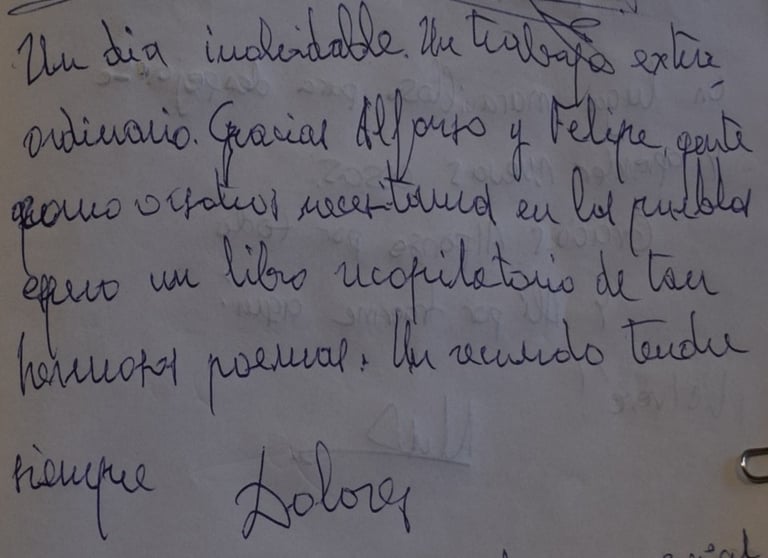 Un dia inolvidable. Un trabajo extra
ordinario. Gracias Alfonso y Felipe, gente
como vosotros necesitamos en los pueblos
espero un libro recopilatorio de tan
hermosos poemas. Un recuerdo tendre
siempre Dolores